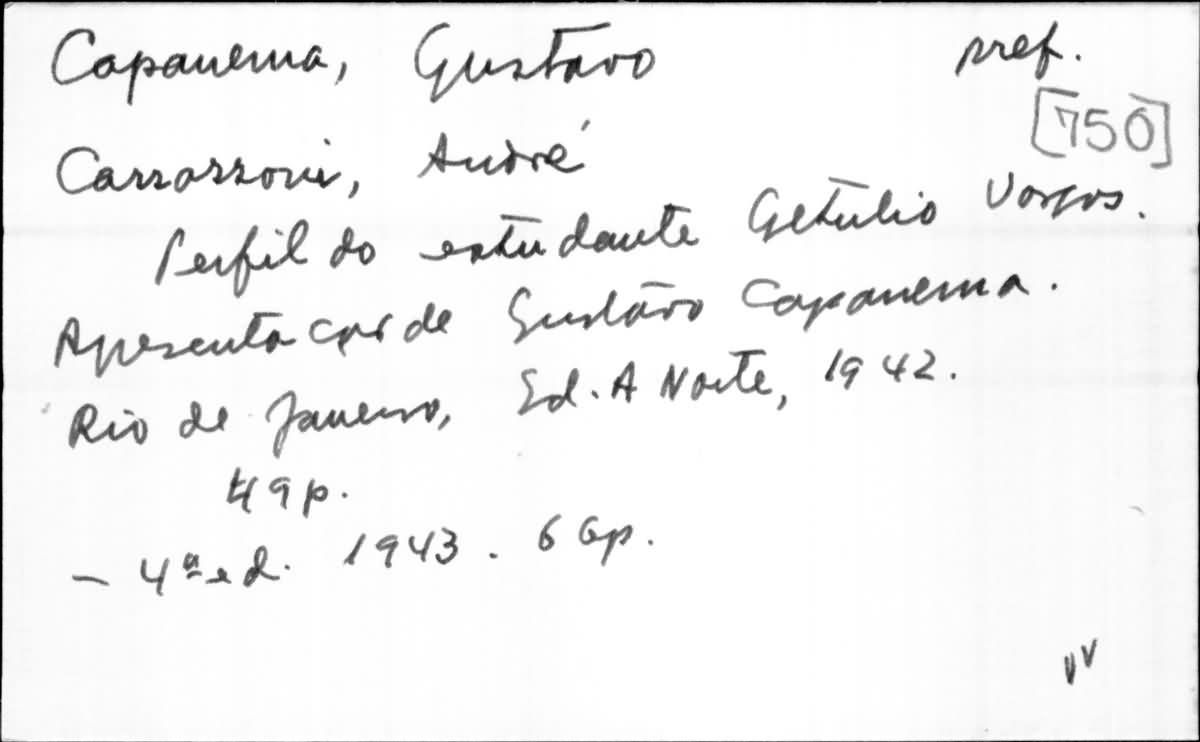 Capanema, Gustavo pref.
[750]
Carrazzoni, André
Perfil do estudante Getulio Vargas.
Apresentação de Gustavo Capanema.
Rio de Janeiro, Ed. A Noite, 1942.
49p.
- 4ª ed. 1943. 66p.
VV